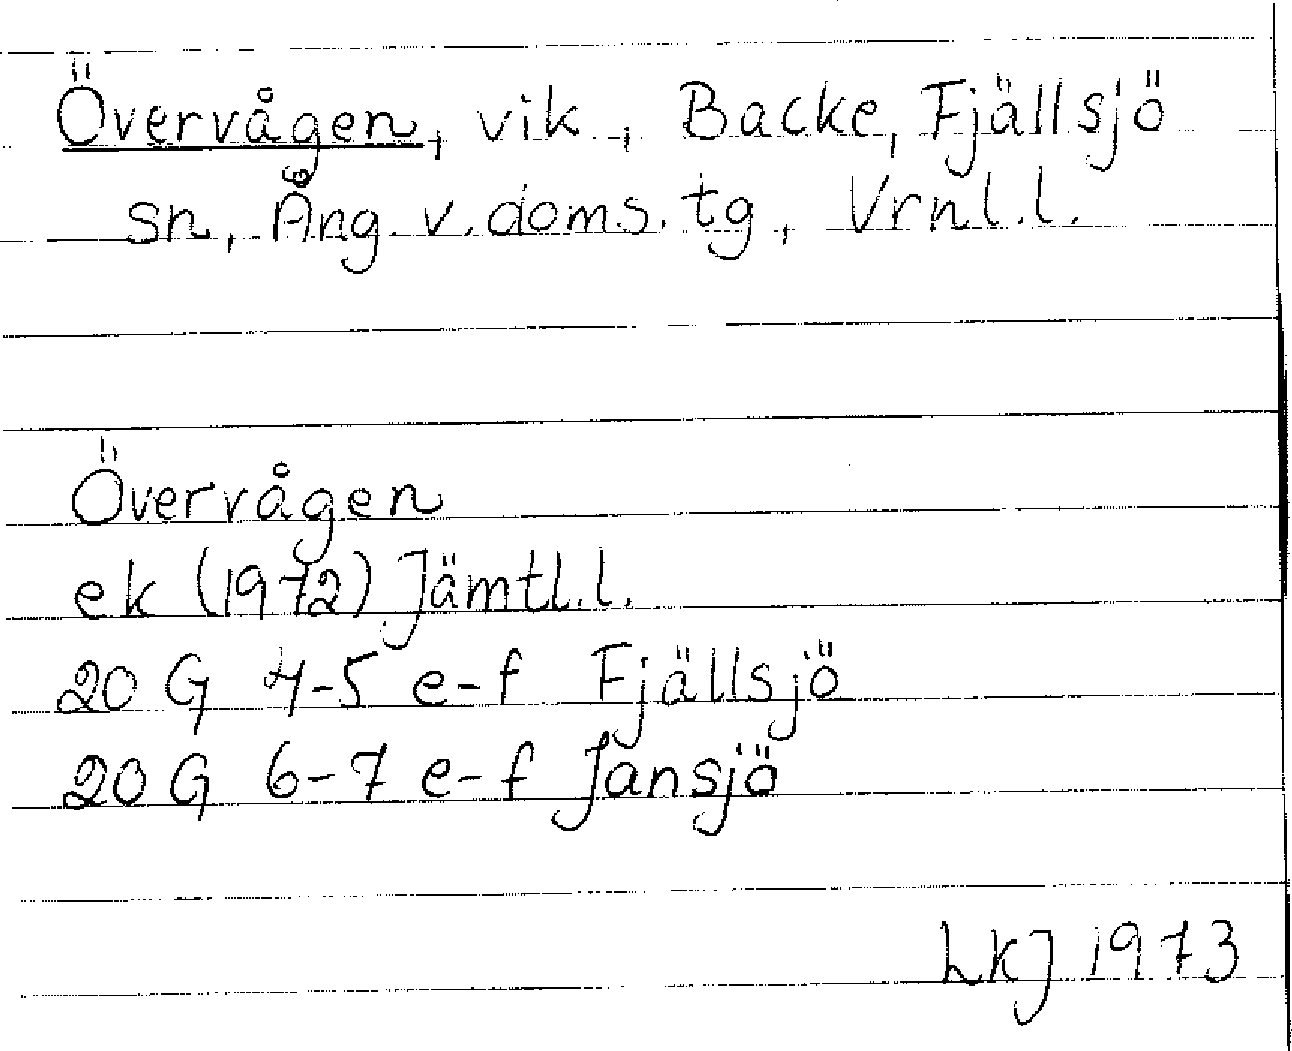 Övervågen, vik, Backe, Fjällsjö
sn, Ång. v. doms. tg, Vrnl.l.
Övervågen
ek (1972) Jämtl.l.
20 G 4-5 e-f Fjällsjö
20 G 6-7 e-f Jansjö
LKJ 1973